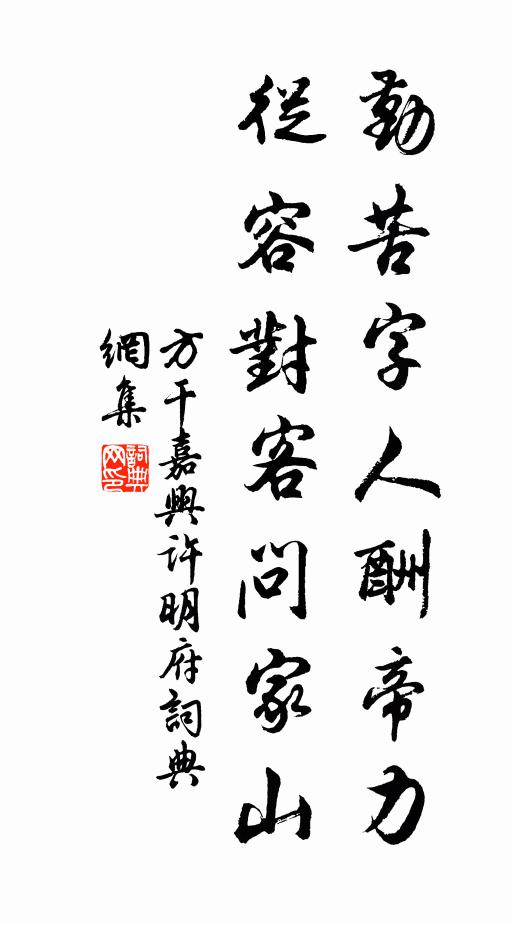 勤苦字人酬帝力
從容對客問家山
方干嘉興許明府詞典
網集
詞典
网印